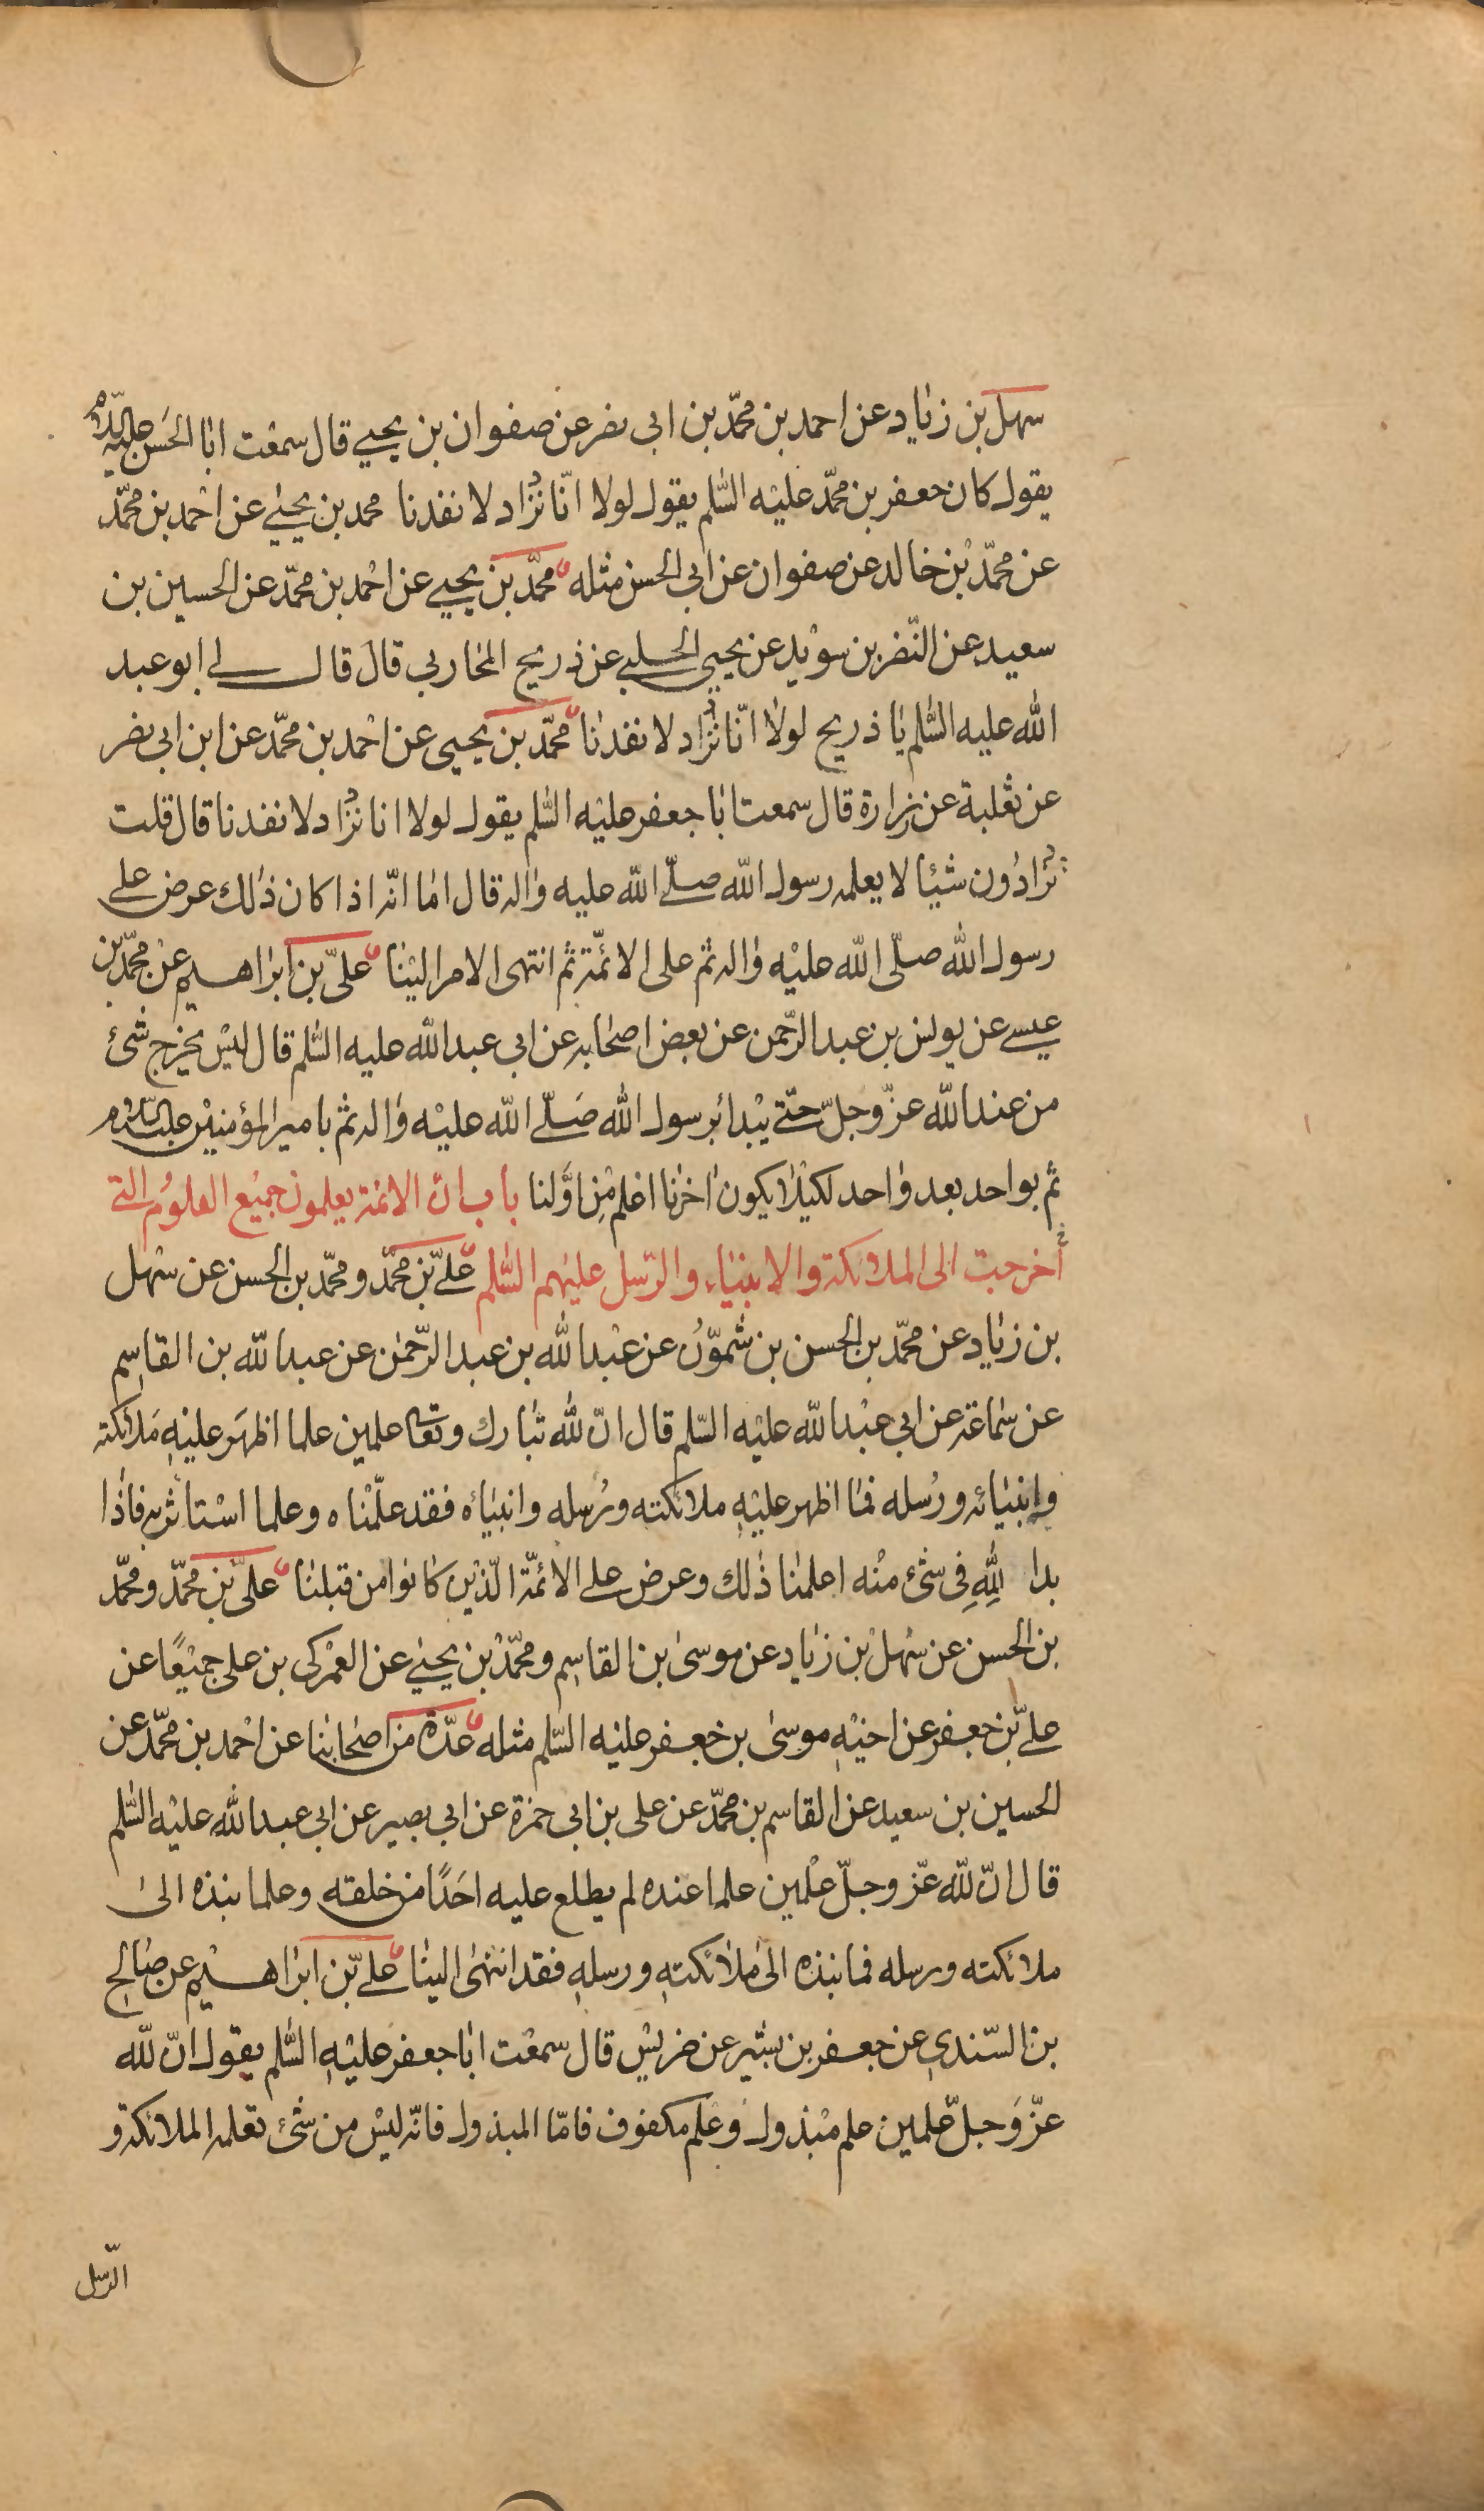 سهل بن زياد عن احمد بن محمّد بن ابى نصر عن صفوان بن يحيى قال سمعت ابا الحسن عليه السّلام
يقول كان جعفر بن محمّد عليه السّلم يقول لولا انّا نزداد لانفدنا محمد بن يحيى عن احمد بن محمّد
عن محمّد بن خالد عن صفوان عن ابى الحسن مثله محمّد بن يحيى عن احمد بن محمّد عن الحسين بن
سعيد عن النّضر بن سويد عن يحيى الحلبى عن ذريح المحاربى قال قال لى ابو عبد
الله عليه السّلم يا ذريح لولا انّا نزداد لانفدنا محمّد بن يحيى عن احمد بن محمّد عن ابن ابى نصر
عن ثعلبة عن زرارة قال سمعت ابا جعفر عليه السّلم يقول لولا انا نزداد لانفدنا قال قلت
تزدادون شيئا لا يعلمه رسول الله صلّى الله عليه واله قال اما انّه اذا كان ذلك عرض على
رسول الله صلّى الله عليه واله ثم على الائمّة ثم انتهى الامر الينا علىّ بن ابراهيم عن محمّد بن
عيسى عن يونس بن عبد الرّحمن عن بعض اصحابه عن ابى عبد الله عليه السّلم قال ليس يخرج شئ
من عند الله عزّ وجلّ حتّى يبدأ برسول الله صلّى الله عليه واله ثم بامير المؤمنين عليه السّلام
ثم بواحد بعد واحد لكيلا يكون اخرنا اعلم من اوّلنا باب انّ الائمة يعلمون جميع العلوم التى
أخرجت الى الملائكة والانبياء والرّسل عليهم السّلم علىّ بن محمّد ومحمّد بن الحسن عن سهل
بن زياد عن محمّد بن الحسن بن شمّون عن عبد الله بن عبد الرّحمن عن عبد الله بن القاسم
عن سماعة عن ابى عبد الله عليه السّلم قال انّ لله تبارك وتعالى علمين علما اظهر عليه ملائكته
وانبيائه ورسله فما اظهر عليه ملائكته ورسله وانبياءه فقد علّمناه وعلما استاثر به فاذا
بدا لله فى شئ منه اعلمنا ذلك وعرض على الائمّة الّذين كانوا من قبلنا علىّ بن محمّد ومحمّد
بن الحسن عن سهل بن زياد عن موسى بن القاسم ومحمّد بن يحيى عن العمركى بن على جميعًا عن
علىّ بن جعفر عن اخيه موسى بن جعفر عليه السّلم مثله عدّة من اصحابنا عن احمد بن محمّد عن
الحسين بن سعيد عن القاسم بن محمّد عن على بن ابى حمزة عن ابى بصير عن ابى عبد الله عليه السّلم
قال انّ لله عزّ وجلّ علمين علما عنده لم يطلع عليه احدًا من خلقه وعلما نبذه الى
ملائكته ورسله فما نبذه الى ملائكته ورسله فقد انتهى الينا علىّ بن ابراهيم عن صالح
بن السّندى عن جعفر بن بشير عن ضريس قال سمعت ابا جعفر عليه السّلم يقول انّ لله
عزّ وجلّ علمين علم مبذول وعلم مكفوف فامّا المبذول فانّه ليس من شئ تعلمه الملائكة و
الرّسل